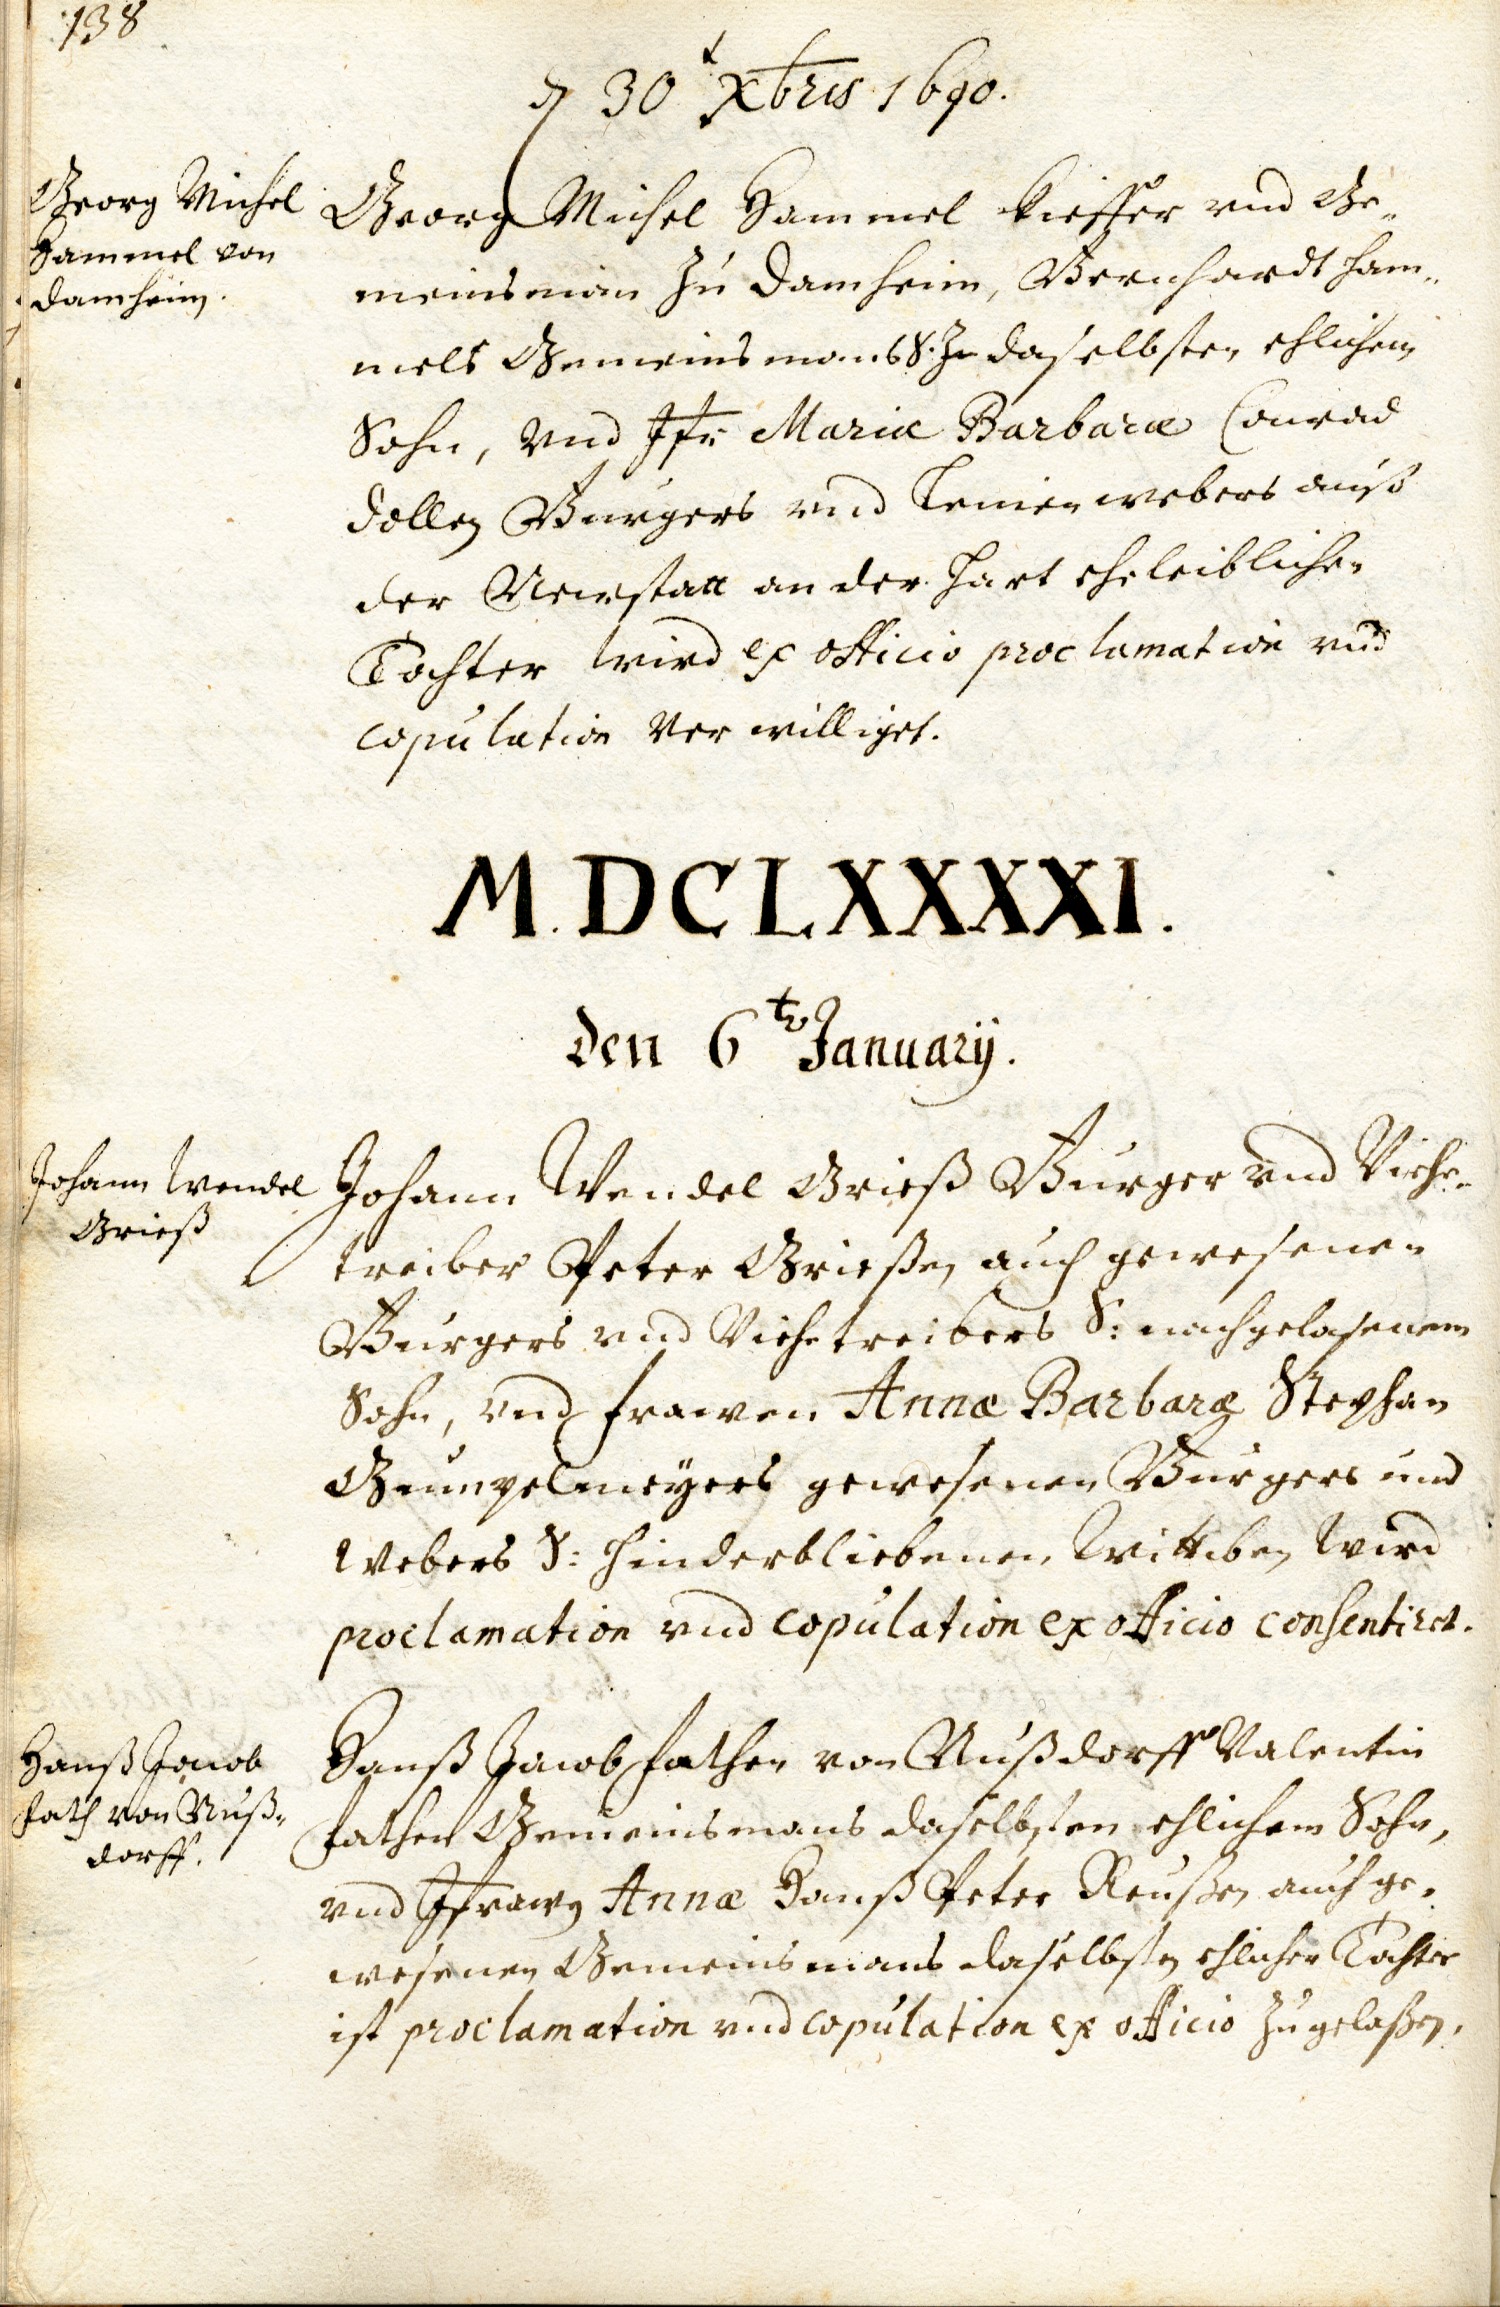 138
d 30t Xbris 1690.
Georg Michel
Hammel von
Damheim.
Georg Michel Hammel Kieffer vnd Ge-
meinsman zu Damheim, Bernhardt Ham-
mels Gemeinsmans S. zu daselbsten ehlichem
Sohn, vnd Jfr Mariæ Barbaræ Conrad
Dollen Burgers vnd Leinenwebers auß
der Newstatt an der Hart eheleiblichen
Tochter wird ex officio proclamation vnd
copulation verwilliget.
M.DCLXXXXI.
Den 6tn Januarij.
Johann Wendel
Grieß
Johann Wendel Grieß Burger vnd Viehe-
treiber Peter Grießen auch gewesenen
Burgers vnd Viehetreibers S: nachgelasenem
Sohn, vnd frawen Annæ Barbaræ Stephan
Gumpelmeyers gewesenen Burgers und
Webers S: hinderbliebenen Wittiben wird
proclamation vnd copulation ex officio consentiret.
Hanß Jacob
Fath von Nuß-
dorff.
Hanß Jacob Fathen von Nußdorff Valentin
Fathen Gemeinsmans daselbsten ehlichem Sohn,
vnd Jfrawen Annæ Hanß Peter Reußen auch ge-
wesenen Gemeinsmans daselbsten ehlicher Tochter
ist proclamation vnd copulation ex officio zugelaßen.